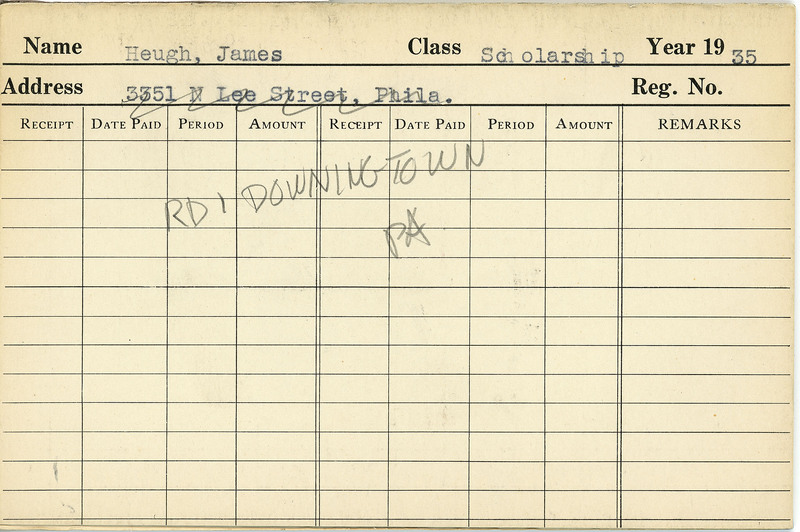 Name Heugh, James Class Scholarship Year 19 35
Address 3351 N Lee Street, Phila. Reg. No.
RECEIPT DATE PAID PERIOD AMOUNT RECEIPT DATE PAID PERIOD AMOUNT REMARKS
RD 1 DOWNINGTOWN
PA